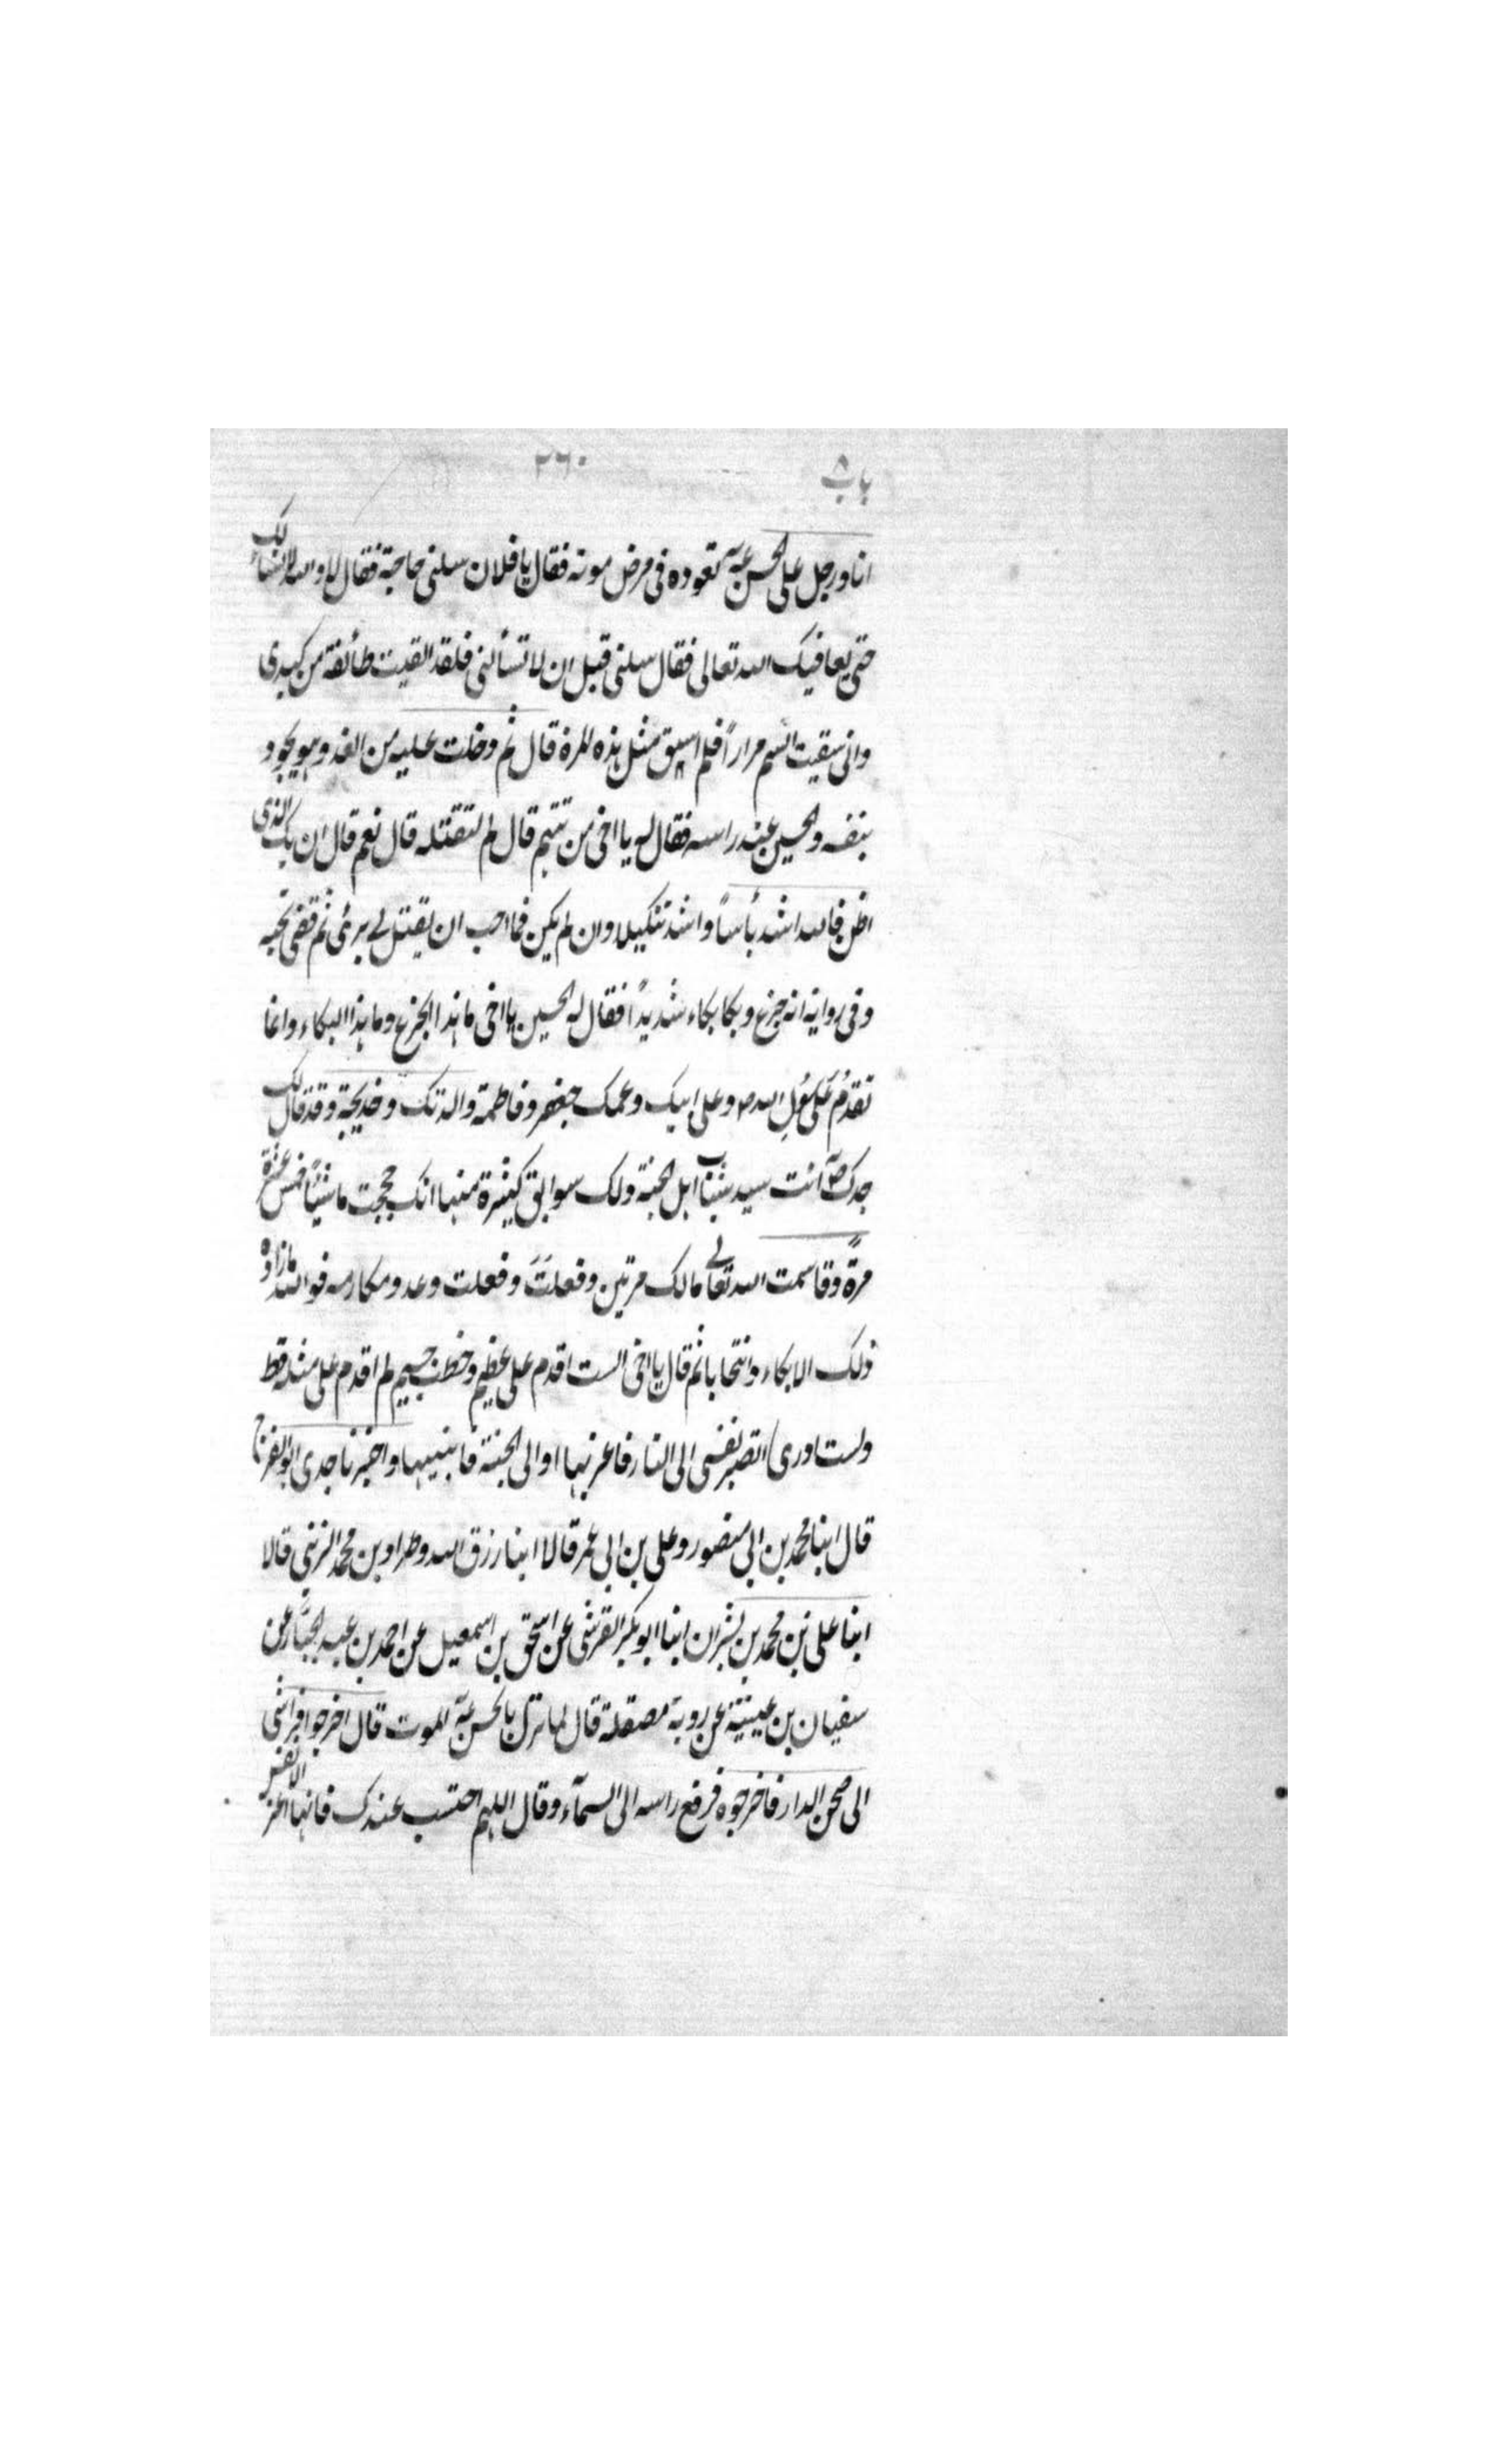 باب ٨
٢٦٠
انا ورجل على الحسن عۃ نعوده فى مرض موته فقال يا فلان سلنى حاجة فقال لا والله لا نسالك
حتى يعافيك الله تعالى فقال سلنى قبل ان لا تسألنى فلقد القيت طائفة من كبدى
وانى سقيت السم مراراً فلم اسق مثل هذه المرة قال ثم دخلت عليه من الغد وهو يجود
بنفسه والحسين عند راسه فقال له يا اخى من تتهم قال لم لتقتله قال نعم قال ان يك الذى
اظن فالله اشد بأساً واشد تنكيلا وان لم يكن فما احب ان يقتل بى برئ ثم قضى نحبه
وفى رواية انه جزع وبكا بكاء شديدًا فقال له الحسين يا اخى ما هذا الجزع وما هذا البكاء وانما
تقدمُ عَلى رسُولِ الله ص وعلى ابيك وعمك جعفر وفاطمة والدتك وخديجة وقد قال لك
جدك ص انت سيد شباب اهل الجنة ولك سوابق كثيرة منها انك حججت ماشيًا خمس عشرة
مرةً وقاسمت الله تعالى مالك مرتين وفعلتَ وفعلت وعد ومكارمه فوالله ما زاده
ذلك الا بكاء وانتحابا ثم قال يا اخى الست اقدم على عظيم وخطب جسيم لم اقدم على مثله قط
ولست ادرى اتصير نفسى الى النار فاعزيها او الى الجنة فاهنيها واخبرنا جدى ابو الفرج
قال ابنا محمد بن ابى منصور وعلى بن ابى عمر قالا ابنا رزق الله وطراد بن محمد الزينبى قالا
ابنا على بن محمد بن بشران ابنا ابو بكر القرشى عن اسحق بن اسمعيل عن احمد بن عبد الجبَّار عن
سفيان بن عيينة عن روبة مصقلة قال لما نزل بالحسن عۃ الموت قال اخرجوا فراشى
الى صحن الدار فاخرجوه فرفع راسه الى السمآء وقال اللهم احتسب عندك فانها اعز الانفس